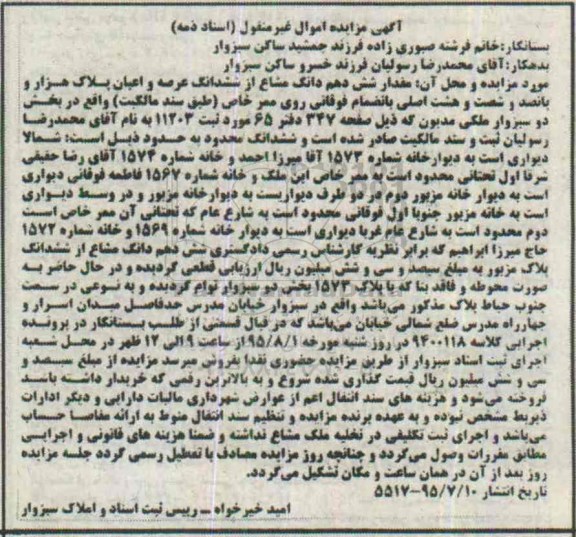 آگهی مزایده اموال غیرمنقول (اسناد ذمه)
بستانکار: خانم فرشته صبوری زاده فرزند جمشید ساکن سبزوار
بدهکار: آقای محمدرضا رسولیان فرزند خسرو ساکن سبزوار
مورد مزایده و محل آن: مقدار شش دهم دانگ مشاع از ششدانگ عرصه و اعیان پلاک هزار و
پانصد و شصت و هشت اصلی بانضمام فوقانی روی ممر خاص (طبق سند مالکیت) واقع در بخش
دو سبزوار ملکی مدیون که ذیل صفحه ۳۴۷ دفتر ۶۵ مورد ثبت ۱۱۲۰۳ به نام آقای محمدرضا
رسولیان ثبت و سند مالکیت صادر شده است و ششدانگ محدود به حدود ذیل است: شمالا
دیواری است به دیوارخانه شماره ۱۵۷۳ آقا میرزا احمد و خانه شماره ۱۵۷۴ آقای رضا حقیقی
شرقا اول تحتانی محدود است به ممر خاص این ملک و خانه شماره ۱۵۶۷ فاطمه فوقانی دیواری
است به دیوار خانه مزبور دوم در دو طرف دیواریست به دیوارخانه مزبور و در وسط دیواری
است به خانه مزبور جنوبا اول فوقانی محدود است به شارع عام که تحتانی آن ممر خاص است
دوم محدود است به شارع عام غربا دیواری است به دیوار خانه شماره ۱۵۶۹ و خانه شماره ۱۵۷۲
حاج میرزا ابراهیم که برابر نظریه کارشناس رسمی دادگستری شش دهم دانگ مشاع از ششدانگ
پلاک مزبور به مبلغ سیصد و سی و شش میلیون ریال ارزیابی قطعی گردیده و در حال حاضر به
صورت محوطه و فاقد بنا که با پلاک ۱۵۷۳ بخش دو سبزوار توام گردیده و به نوعی در سمت
جنوب حیاط پلاک مذکور می‌باشد واقع در سبزوار خیابان مدرس حدفاصل میدان اسرار و
چهارراه مدرس ضلع شمالی خیابان می‌باشد که در قبال قسمتی از طلب بستانکار در پرونده
اجرایی کلاسه ۹۴۰۰۱۱۸ در روز شنبه مورخه ۹۵/۸/۱ از ساعت ۹ الی ۱۲ ظهر در محل شعبه
اجرای ثبت اسناد سبزوار از طریق مزایده حضوری نقدا بفروش میرسد مزایده از مبلغ سیصد و
سی و شش میلیون ریال قیمت گذاری شده شروع و به بالاترین رقمی که خریدار داشته باشد
فروخته می‌شود و هزینه های سند انتقال اعم از عوارض شهرداری مالیات دارایی و دیگر ادارات
ذیربط مشخص نبوده و به عهده برنده مزایده و تنظیم سند انتقال منوط به ارائه مفاصا حساب
می‌باشد و اجرای ثبت تکلیفی در تخلیه ملک مشاع نداشته و ضمنا هزینه های قانونی و اجرایی
مطابق مقررات وصول می‌گردد و چنانچه روز مزایده مصادف با تعطیل رسمی گردد جلسه مزایده
روز بعد از آن در همان ساعت و مکان تشکیل می‌گردد.
تاریخ انتشار ۹۵/۷/۱۰-۵۵۱۷
امید خیرخواه ــ رییس ثبت اسناد و املاک سبزوار